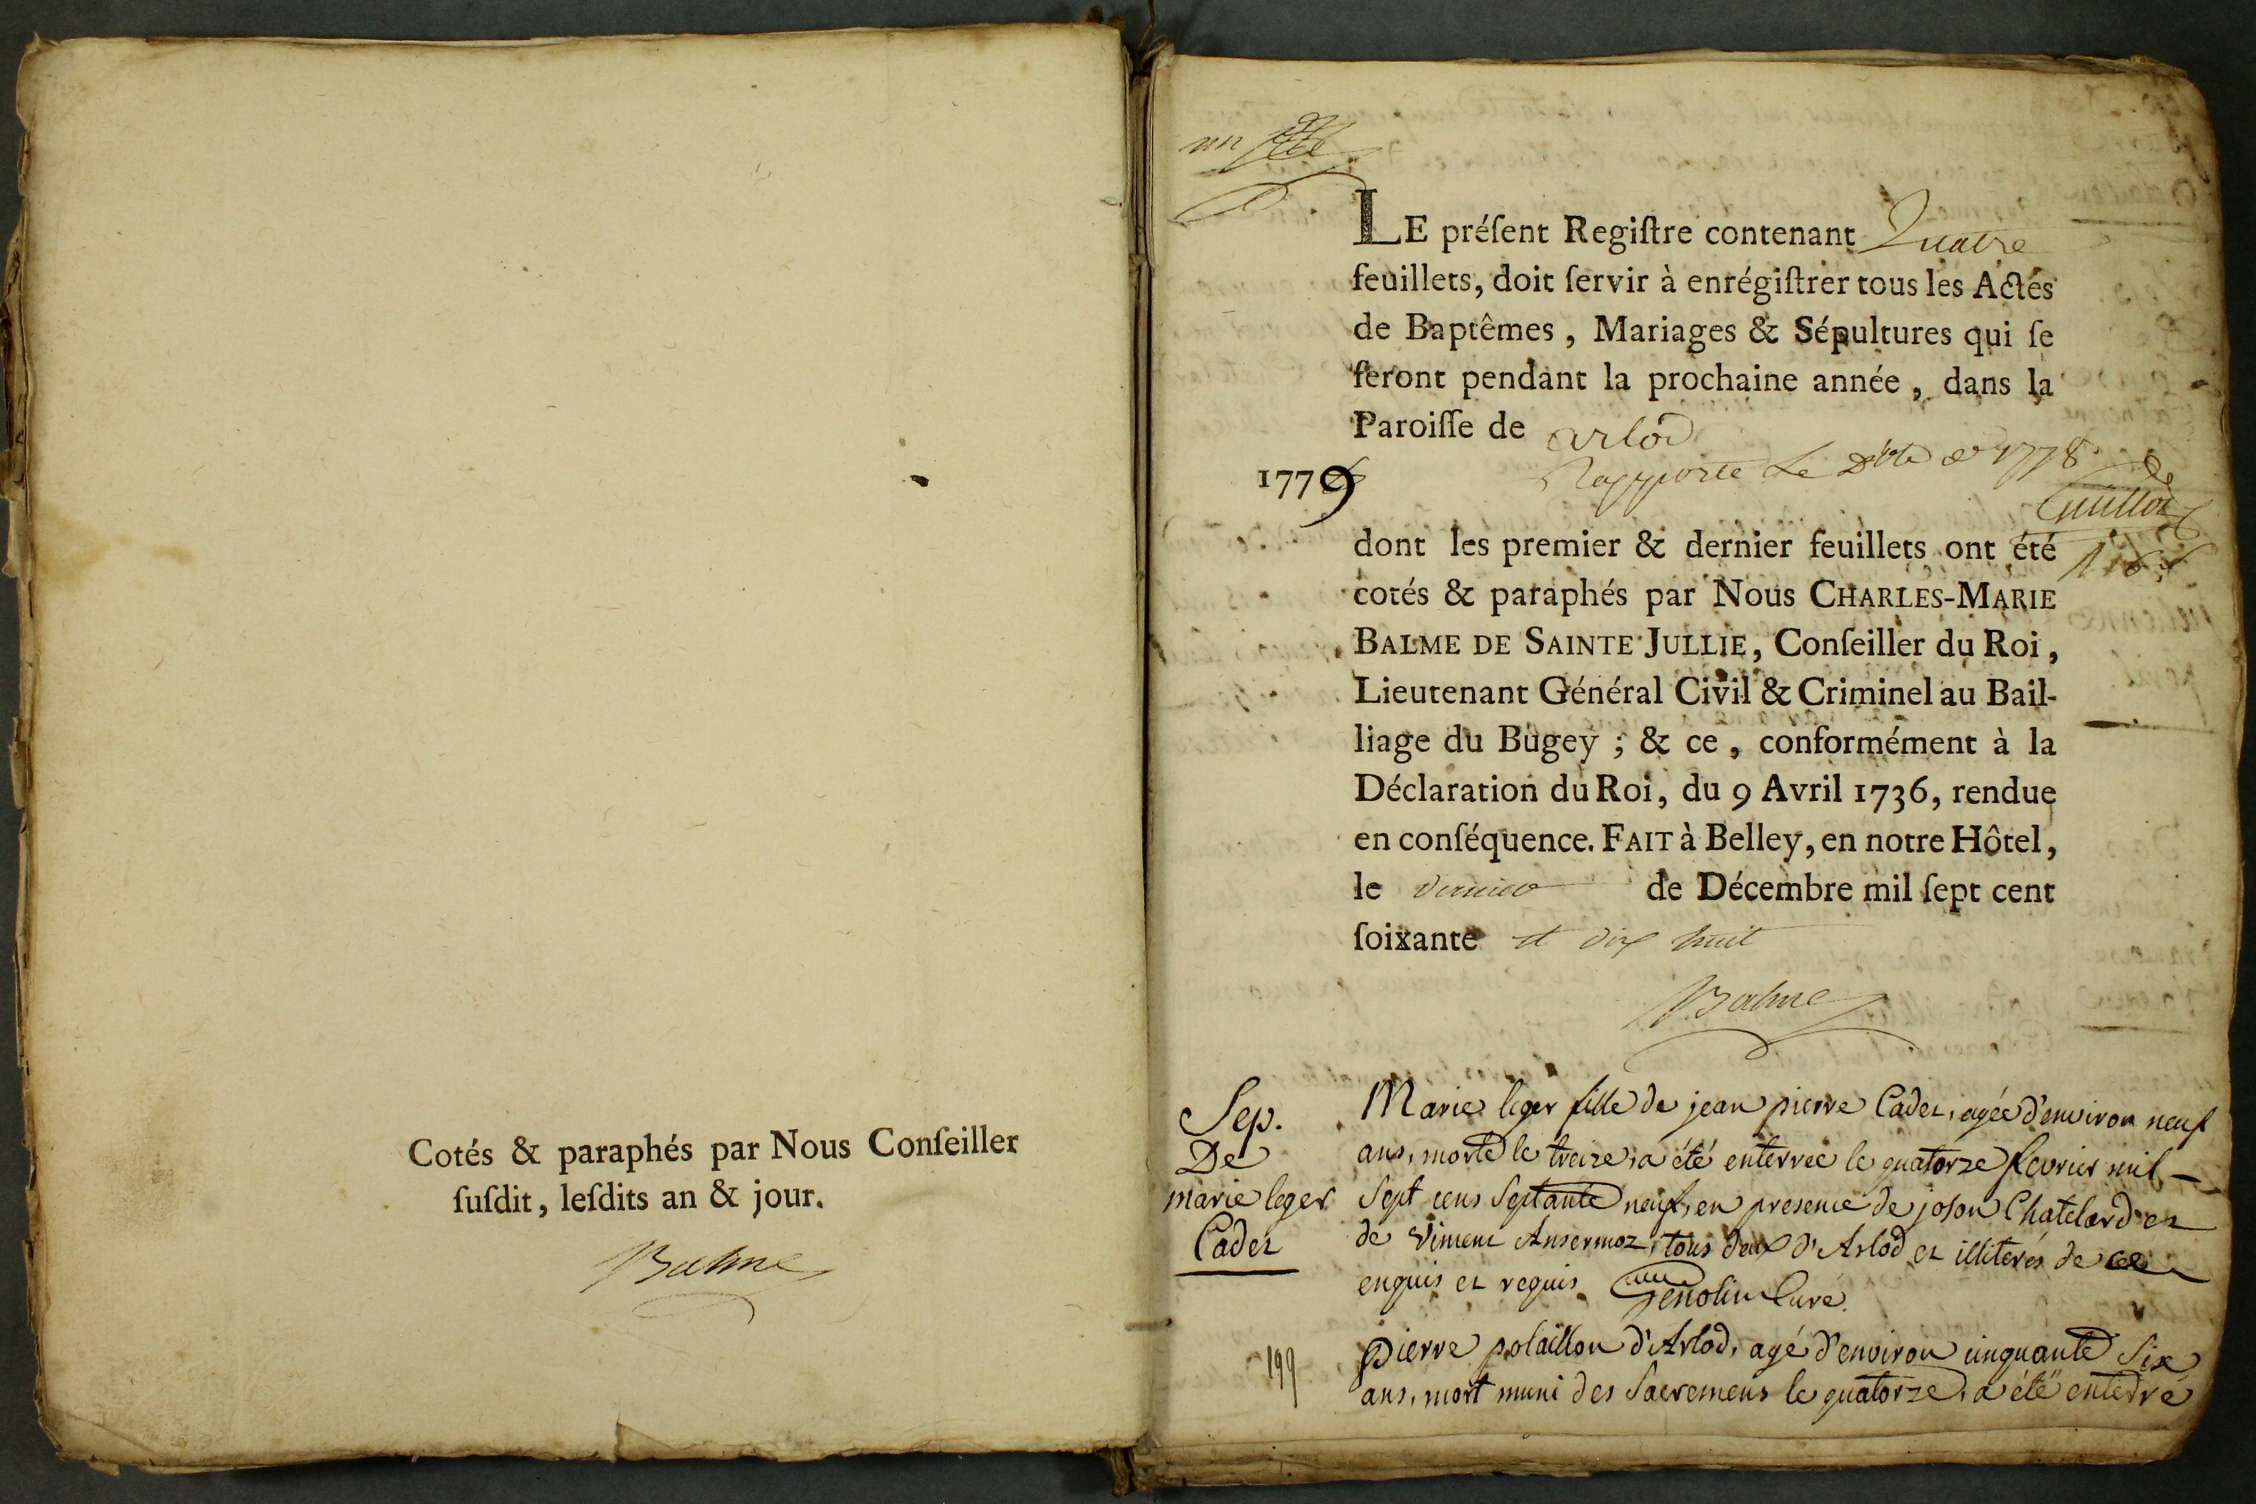 Cotés & paraphés par Nous Conſeiller
ſuſdit, leſdits an & jour.
Balme
un
LE préſent Regiſtre contenant Quatre
feuillets, doit ſervir à enrégiſtrer tous les Actes
de Baptêmes, Mariages & Sépultures qui ſe
feront pendant la prochaine année, dans la
Paroiſſe de arlod
1779
Rapporté Le 1778
Guillot
dont les premier & dernier feuillets ont été
cotés & paraphés par Nous CHARLES-MARIE
BALME DE SAINTE JULLIE, Conſeiller du Roi,
Lieutenant Général Civil & Criminel au Bail-
liage du Bugey; & ce, conformément à la
Déclaration du Roi, du 9 Avril 1736, rendue
en conſéquence. FAIT à Belley, en notre Hôtel,
le dernier de Décembre mil ſept cent
ſoixante et dix huit
Balme
Sep.
De
marie leger
Cadet
Marie leger fille de jean pierre Cadet, agée d'environ neuf
ans, morte le treize, a été enterrée le quatorze fevrier mil
sept cens septante neuf, en presence de joson Chatelard et
de Vincent Ansermoz, tous deux d'Arlod et illiterés de ce
enquis et requis. Genolin Curé.
199
pierre polaillon d'Arlod, agé d'environ cinquante six
ans, mort muni des Sacremens le quatorze, a été enterré